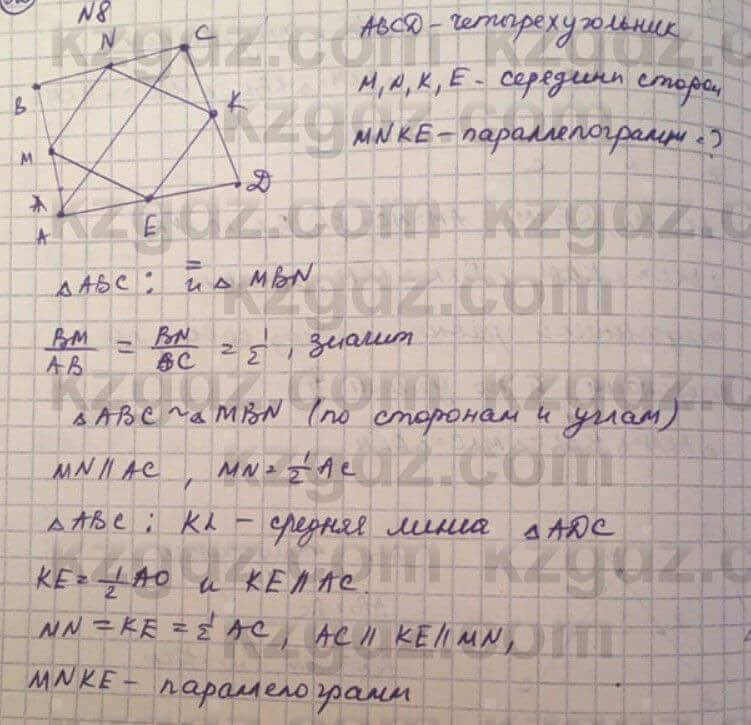 N8
ABCD - четырехугольник
M, N, K, E - середины сторон
MNKE - параллелограмм - ?
N
C
B
K
M
A
A
E
D
△ABC : и △ MBN
BM/AB = BN/BC = 1/2, значит
△ABC ~ △ MBN (по сторонам и углам)
MN || AC , MN = 1/2 AC
△ABC ; KL - средняя линия △ADC
KE = 1/2 AO и KE || AC.
NN = KE = 1/2 AC, AC || KE || MN,
MNKE - параллелограмм
kzgdz.com